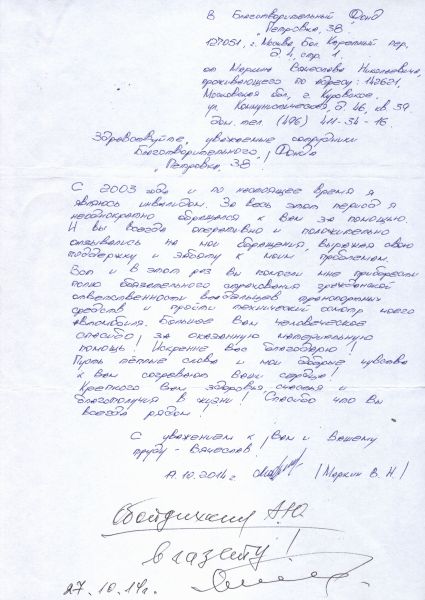 В Благотворительный Фонд
"Петровка, 38"
127051, г. Москва, Бол. Каретный пер,
д. 4, стр. 1.
от Маркина Вячеслава Николаевича,
проживающего по адресу: 142621,
Московская обл, г. Куровское,
ул. Коммунистическая, д. 46, кв. 39
дом. тел. (496) 411-34-16
Здравствуйте, уважаемые сотрудники
Благотворительного Фонда
"Петровка, 38"!
С 2003 года и по настоящее время я
являюсь инвалидом. За весь этот период я
неоднократно обращался к Вам за помощью.
И вы всегда оперативно и положительно
отзывались на мои обращения, выражая свою
поддержку и заботу к моим проблемам.
Вот и в этот раз вы помогли мне приобрести
полис обязательного страхования гражданской
ответственности владельцев транспортных
средств и пройти технический осмотр моего
автомобиля. Большое Вам человеческое
спасибо, за оказанную материальную
помощь! Искренне Вас благодарю!
Пусть тёплые слова и мои добрые чувства
к Вам согревают Ваши сердца!
Крепкого Вам здоровья, счастья и
благополучия в жизни! Спасибо что Вы
всегда рядом.
С уважением к Вам и Вашему
труду - Вячеслав.
10.2014г /Маркин В. Н./
в газету!
27.10.14г.